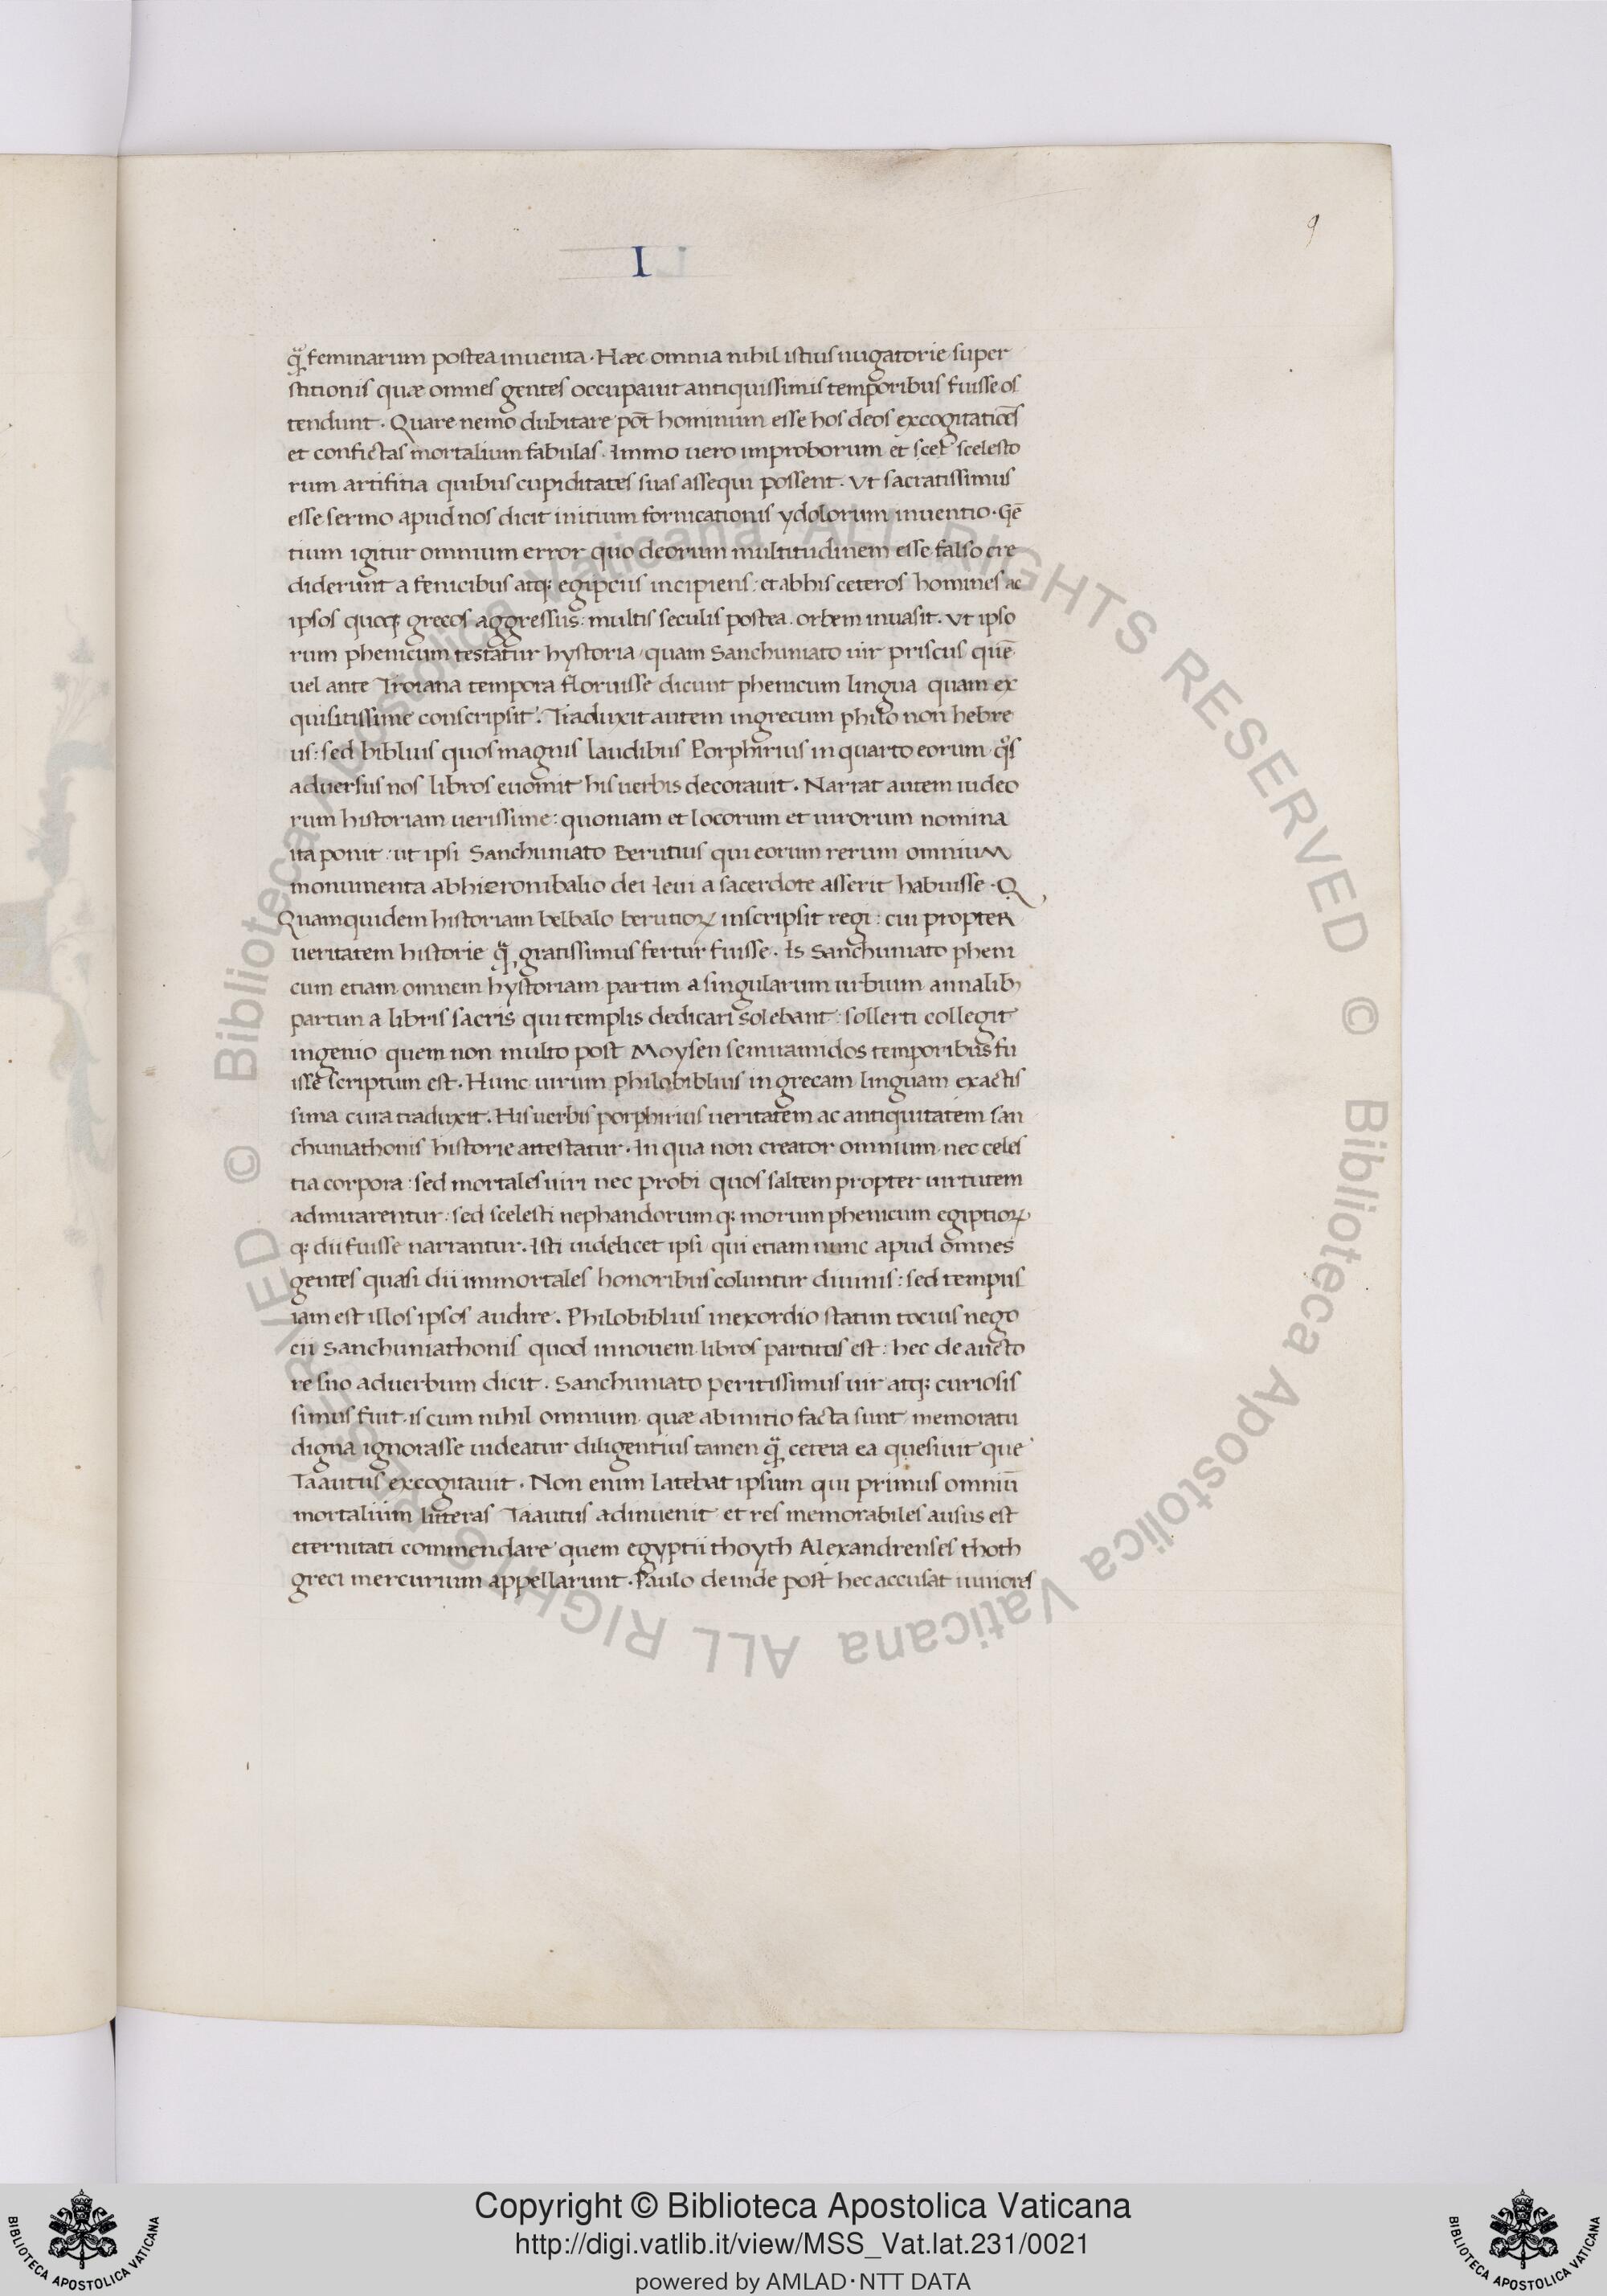 I
9
qᷓ feminarum postea inuenta · Hæc omnia nihil istius nugatorie super
stitionis quæ omnes gentes occupauit antiquissimis temporibus fuisse os
tendunt · Quare nemo dubitare pōt hominum esse hos deos excogitatiōes
et confictas mortalium fabulas · Immo uero improborum et scelesto
rum artifitia quibus cupiditates suas assequi possent · Vt sacratissimus
esse sermo apud nos dicit initium fornicationis ydolorum inuentio · Gē
tium igitur omnium error quo deorum multitudinem esse falso cre
diderunt a fenicibus atq; egipciis incipiens : et ab his ceteros homines ac
ipsos quoq; grecos aggressus : multis seculis postea orbem inuasit · Vt ipso
rum phenicum testatur hystoria quam Sanchuniato uir priscus quē
uel ante Troiana tempora floruisse dicunt phenicum lingua quam ex
quisitissime conscripsit · Traduxit autem in grecum philo non hebre
us : sed biblius quos magnis laudibus Porphirius in quarto eorum qͦs
aduersus nos libros euomit his uerbis decorauit · Narrat autem iudeo
rum historiam uerissime : quoniam et locorum et uirorum nomina
ita ponit : ut ipsi Sanchuniato Berutius qui eorum rerum omnium
monumenta ab hieronibalio dei leui a sacerdote asserit habuisse · Q
Quamquidem historiam belbalo berutioꝝ inscripsit regi : cui propter
ueritatem historie qᷓ gratissimus fertur fuisse · Is Sanchuniato pheni
cum etiam omnem hystoriam partim a singularum urbium annalibꝫ
partim a libris sacris qui templis dedicari solebant : sollerti collegit
ingenio quem non multo post Moysen semiramidos temporibus fu
isse scriptum est · Hunc uirum philobiblius in grecam linguam exactis
sima cura traduxit · His uerbis porphirius ueritatem ac antiquitatem san
chuniathonis historie attestatur · In qua non creator omnium nec celes
tia corpora : sed mortales uiri nec probi quos saltem propter uirtutem
admirarentur : sed scelesti nephandorum q; morum phenicum egiptioꝝ
q; dii fuisse narrantur · Isti uidelicet ipsi qui etiam nunc apud omnes
gentes quasi dii immortales honoribus coluntur diuinis : sed tempus
iam est illos ipsos audire · Philobiblius in exordio statim tocius nego
cii Sanchuniathonis quod in nouem libros partitus est : hec de aucto
re suo ad uerbum dicit · Sanchuniato peritissimus uir atq; curiosis
simus fuit · is cum nihil omnium quæ ab initio facta sunt memoratu
digna ignorasse uideatur diligentius tamen qᷓ cetera ea quesiuit que
Taautus excogitauit · Non enim latebat ipsum qui primus omniū
mortalium litteras Taautus adinuenit et res memorabiles ausus est
eternitati commendare quem egyptii thoyth Alexandrenses thoth
greci mercurium appellarunt · Paulo deinde post hec accusat iuniores
© Biblioteca Apostolica Vaticana ALL RIGHTS RESERVED © Biblioteca Apostolica Vaticana ALL RIGHTS RESERVED
BIBLIOTECA APOSTOLICA VATICANA
Copyright © Biblioteca Apostolica Vaticana
http://digi.vatlib.it/view/MSS_Vat.lat.231/0021
powered by AMLAD·NTT DATA
BIBLIOTECA APOSTOLICA VATICANA